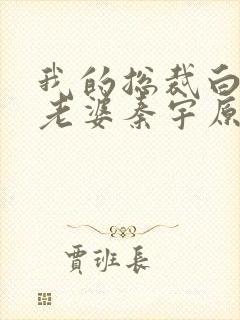 我的总裁白
老婆秦宇原
賈班長